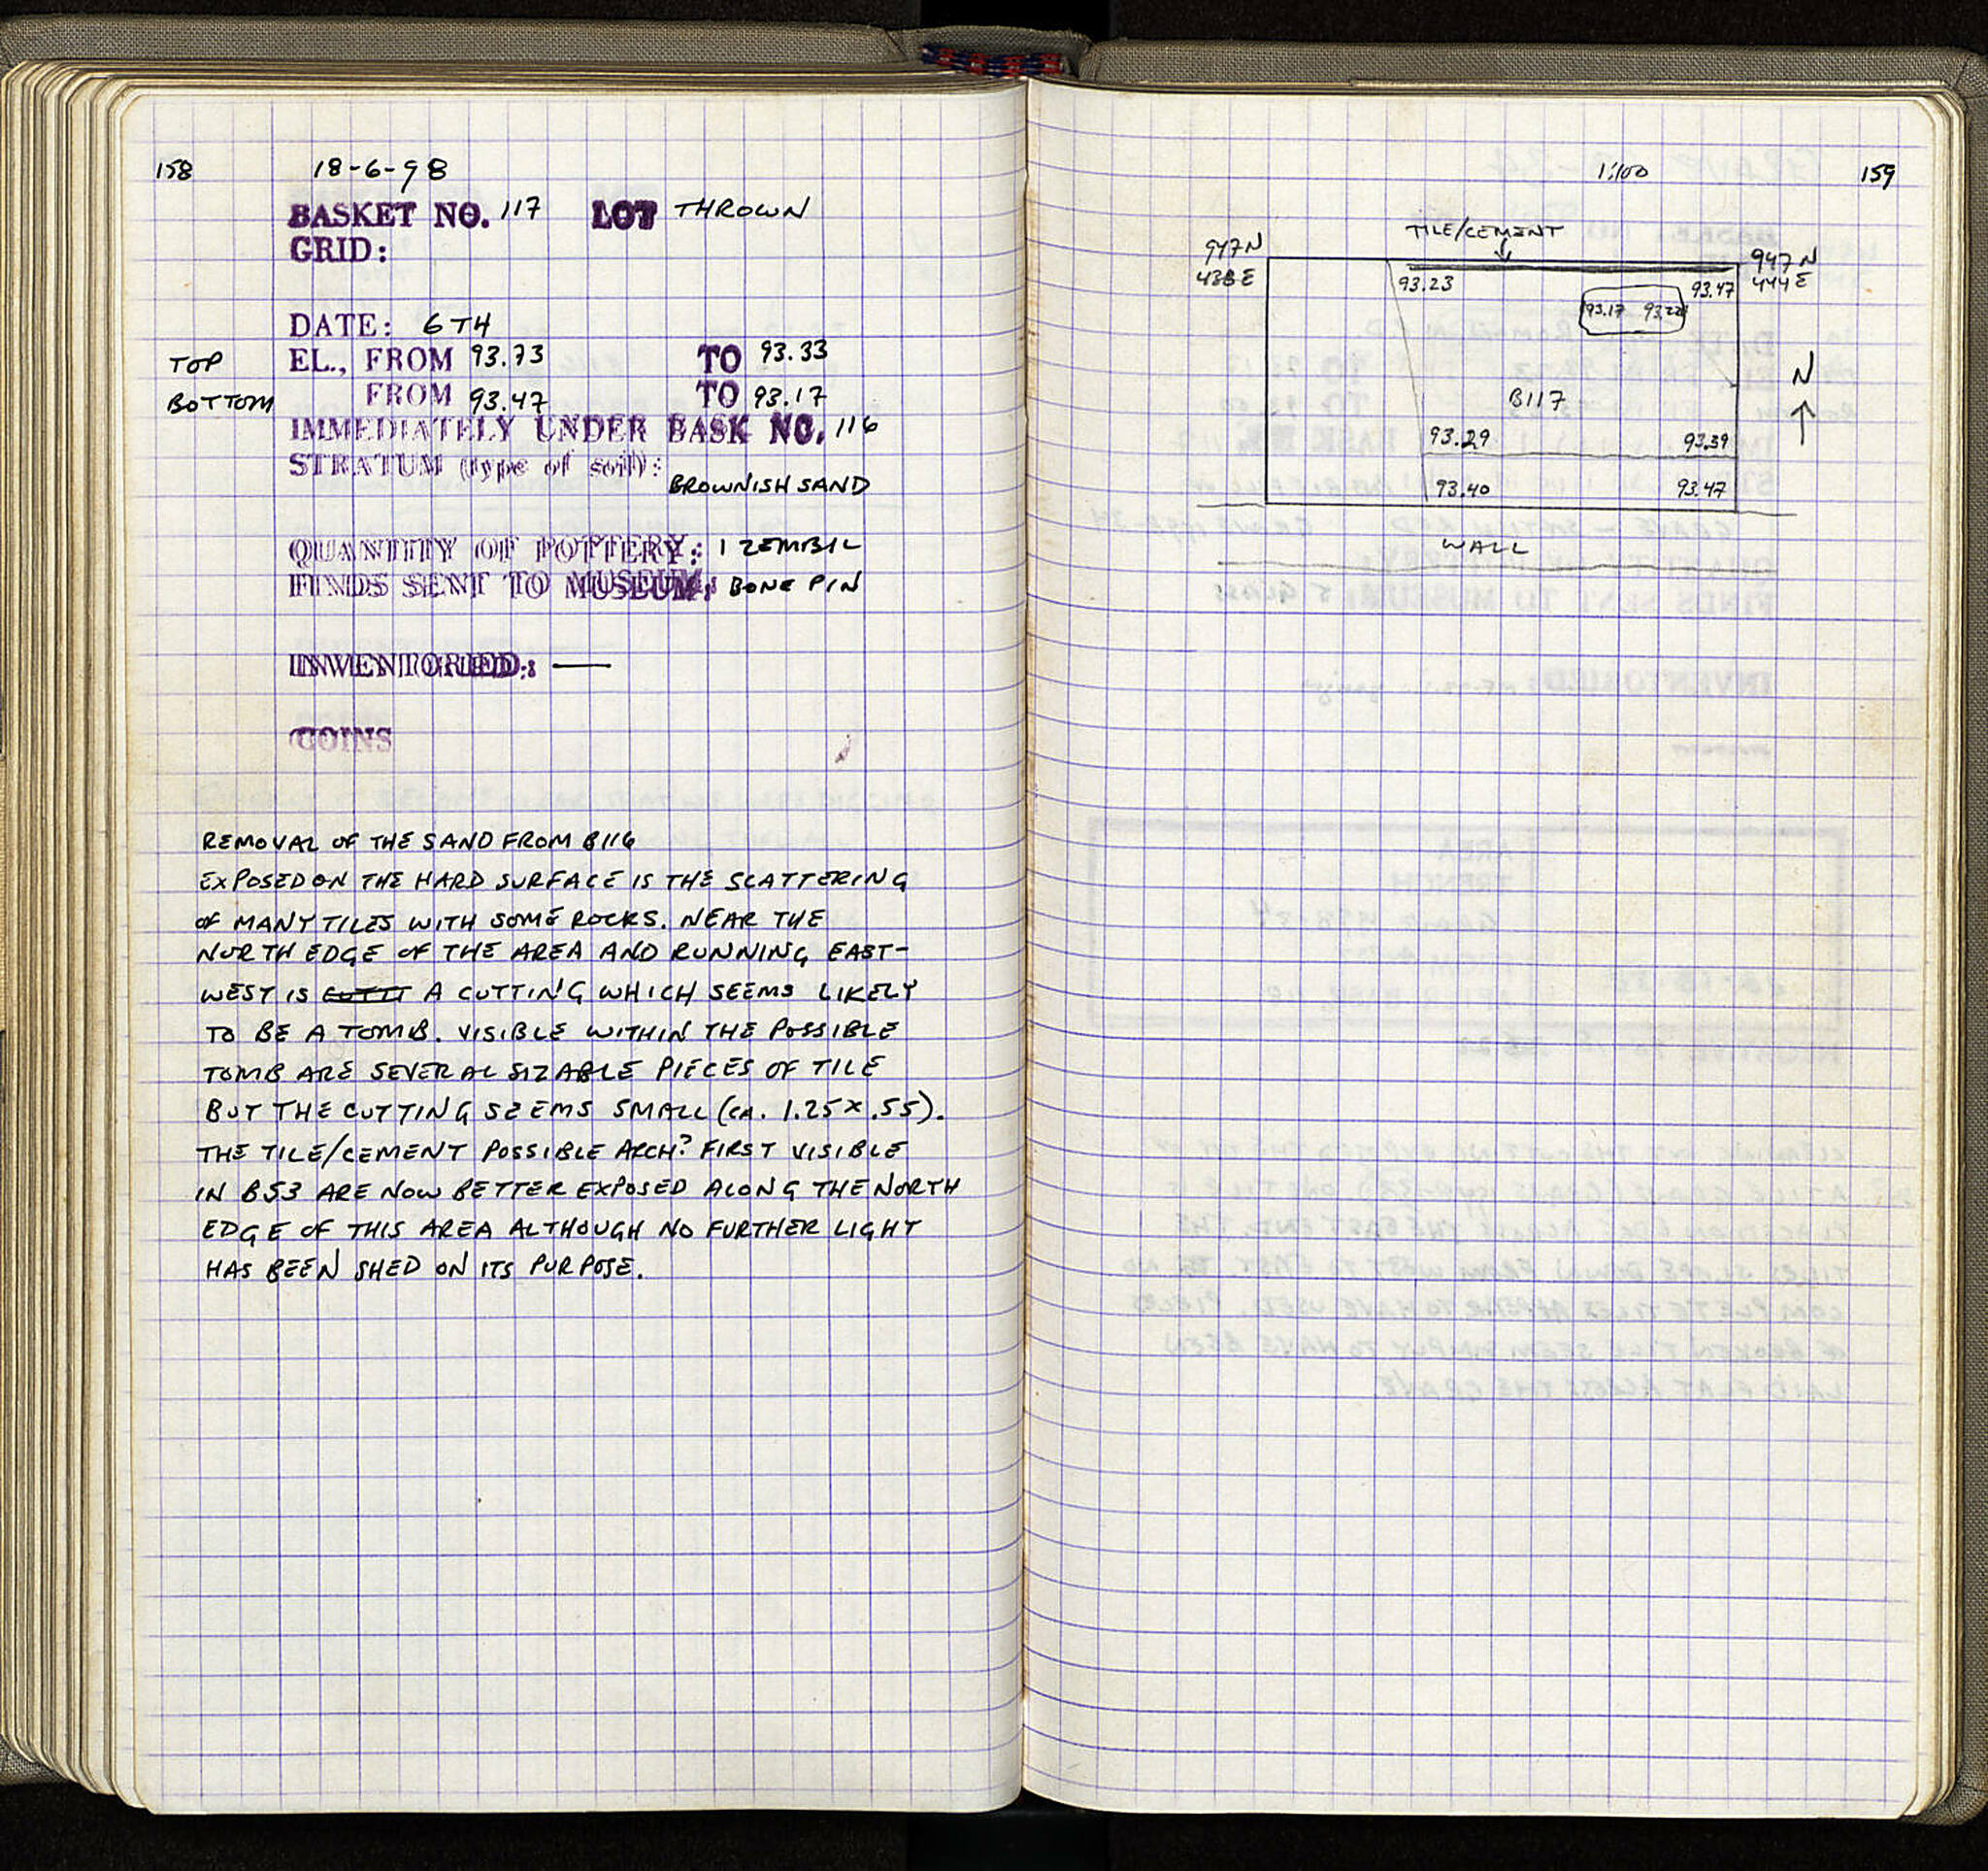 158 18-6-98
BASKET NO. 117 LOT THROWN
GRID:
DATE: 6TH
TOP EL., FROM 93.73 TO 93.33
BOTTOM FROM 93.47 TO 93.17
IMMEDIATELY UNDER BASK NO. 116
STRATUM (type of soil):
BROWNISH SAND
QUANTITY OF POTTERY: 1 ZEMBIL
FINDS SENT TO MUSEUM: BONE PIN
INVENTORIED: —
COINS
REMOVAL OF THE SAND FROM B116
EXPOSED ON THE HARD SURFACE IS THE SCATTERING
OF MANY TILES WITH SOME ROCKS. NEAR THE
NORTH EDGE OF THE AREA AND RUNNING EAST-
WEST IS A CUTTING WHICH SEEMS LIKELY
TO BE A TOMB. VISIBLE WITHIN THE POSSIBLE
TOMB ARE SEVERAL SIZABLE PIECES OF TILE
BUT THE CUTTING SEEMS SMALL (CA. 1.25 X .55).
THE TILE/CEMENT POSSIBLE ARCH? FIRST VISIBLE
IN B53 ARE NOW BETTER EXPOSED ALONG THE NORTH
EDGE OF THIS AREA ALTHOUGH NO FURTHER LIGHT
HAS BEEN SHED ON ITS PURPOSE.
1:100 159
TILE/CEMENT
947N 947N
438E 444E
93.23 93.47
93.17 93.22
N
B117
93.29 93.39
93.40 93.47
WALL